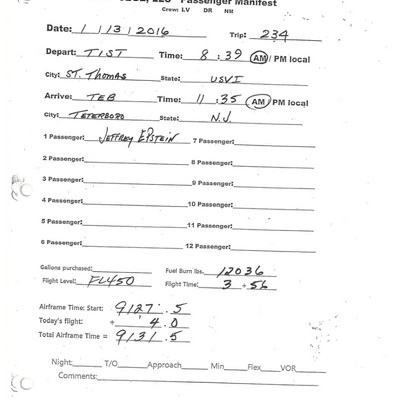 LLC - Passenger Manifest
Crew: LV DR NM
Date: 1 / 13 / 2016 Trip: 234
Depart: TIST Time: 8 : 39 AM / PM local
City: ST. THOMAS State: USVI
Arrive: TEB Time: 11 : 35 AM / PM local
City: TETERBORO State: N.J.
1 Passenger: JEFFREY EPSTEIN 7 Passenger:
2 Passenger: 8 Passenger:
3 Passenger: 9 Passenger:
4 Passenger: 10 Passenger:
5 Passenger: 11 Passenger:
6 Passenger: 12 Passenger:
Gallons purchased: Fuel Burn lbs. 12036
Flight Level: FL450 Flight Time: 3 + 56
Airframe Time: Start: 9127.5
Today's flight: + 4.0
Total Airframe Time = 9131.5
Night: T/O Approach Min Flex VOR
Comments: